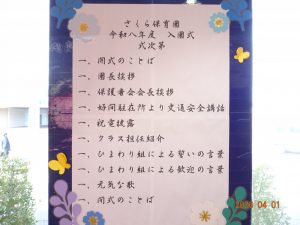 さくら保育園
令和八年度　入園式
式次第
一、開式のことば
一、園長挨拶
一、保護者会会長挨拶
一、好間駐在所より交通安全講話
一、祝電披露
一、クラス担任紹介
一、ひまわり組による誓いの言葉
一、ひまわり組による歓迎の言葉
一、元気な歌
一、閉式のことば
2026 04 01